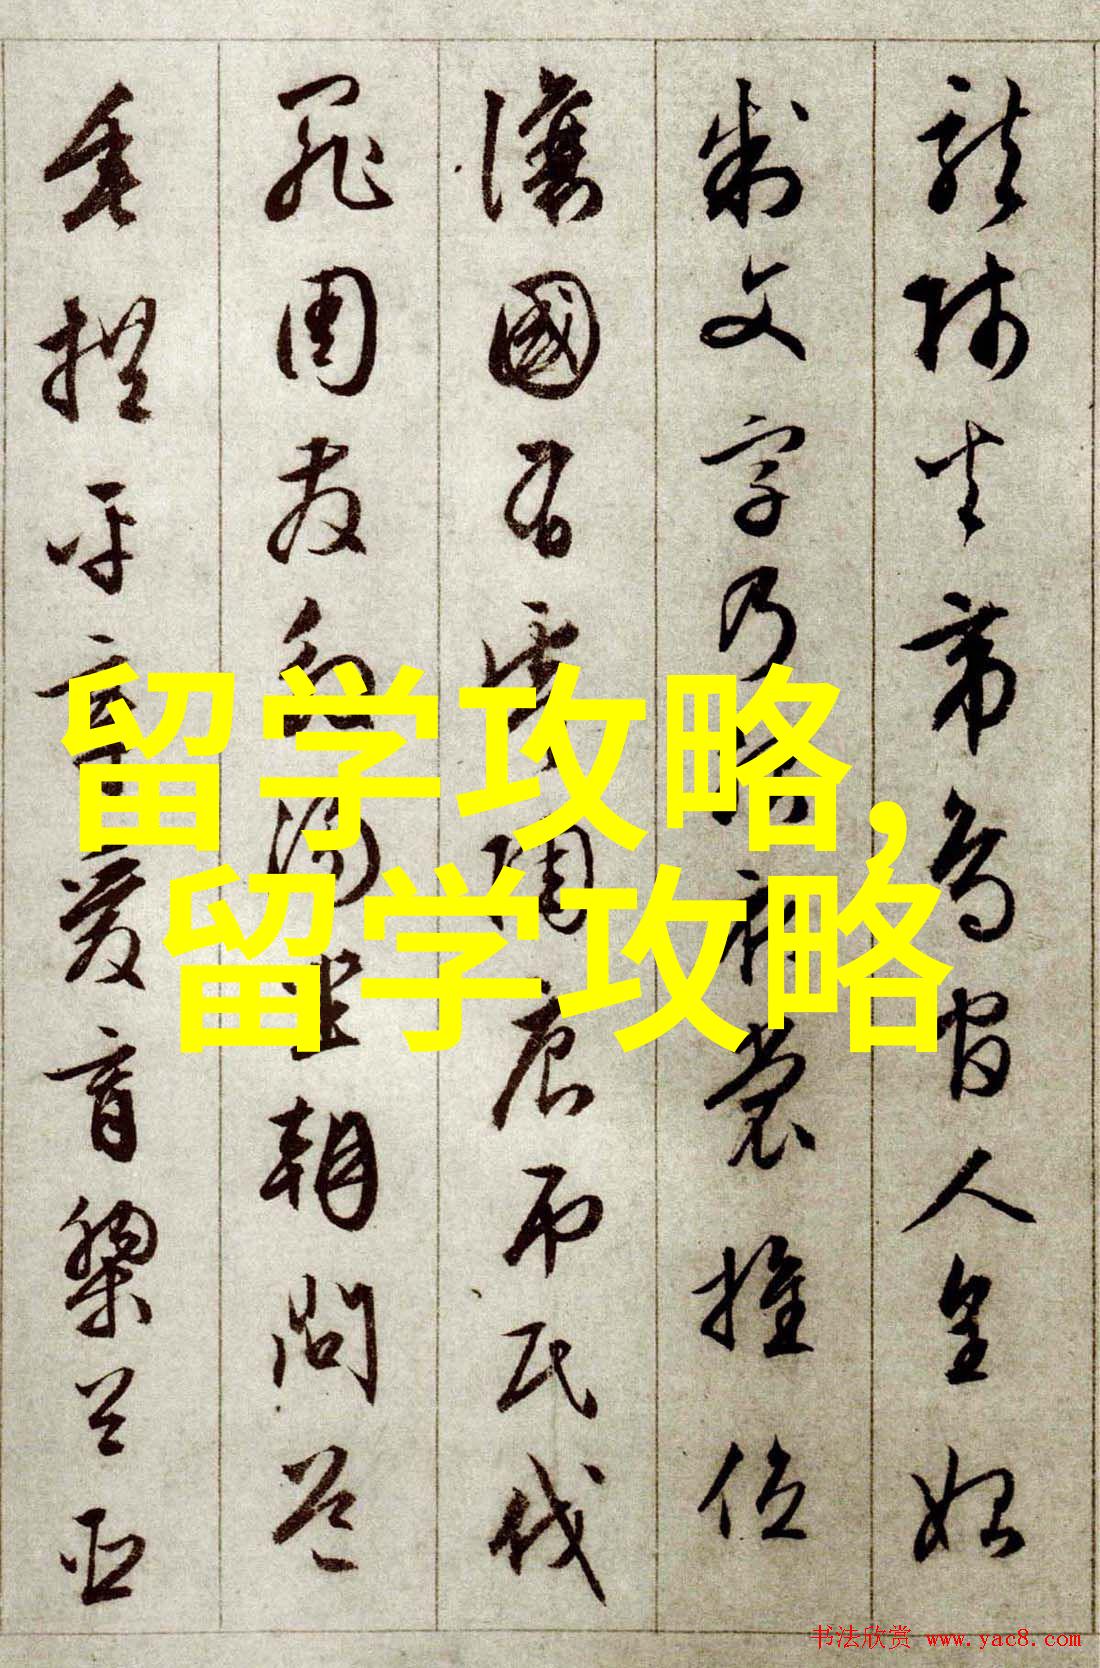 龍師火帝鳥官人皇始
制文字乃服衣裳推位
讓國有虞陶唐弔民伐
罪周發殷湯坐朝問道
垂拱平章愛育黎首臣
留学攻略,
留学攻略
书法欣赏 www.yac8.com